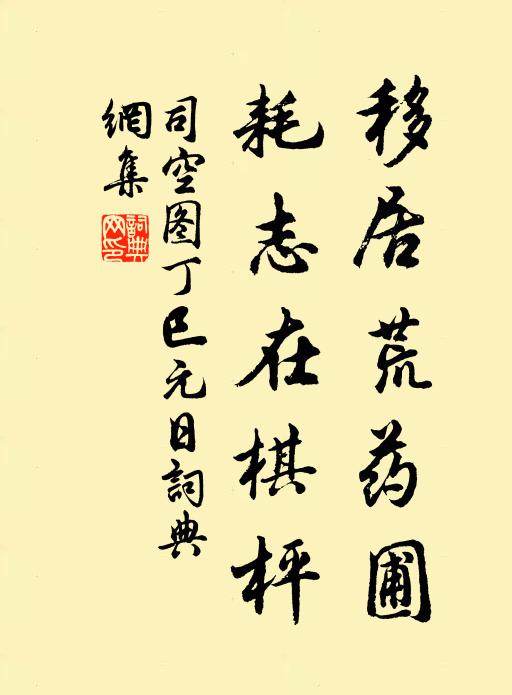 移居荒药圃
耗志在棋枰
司空图丁巳元日詞典
網集
詞典網印